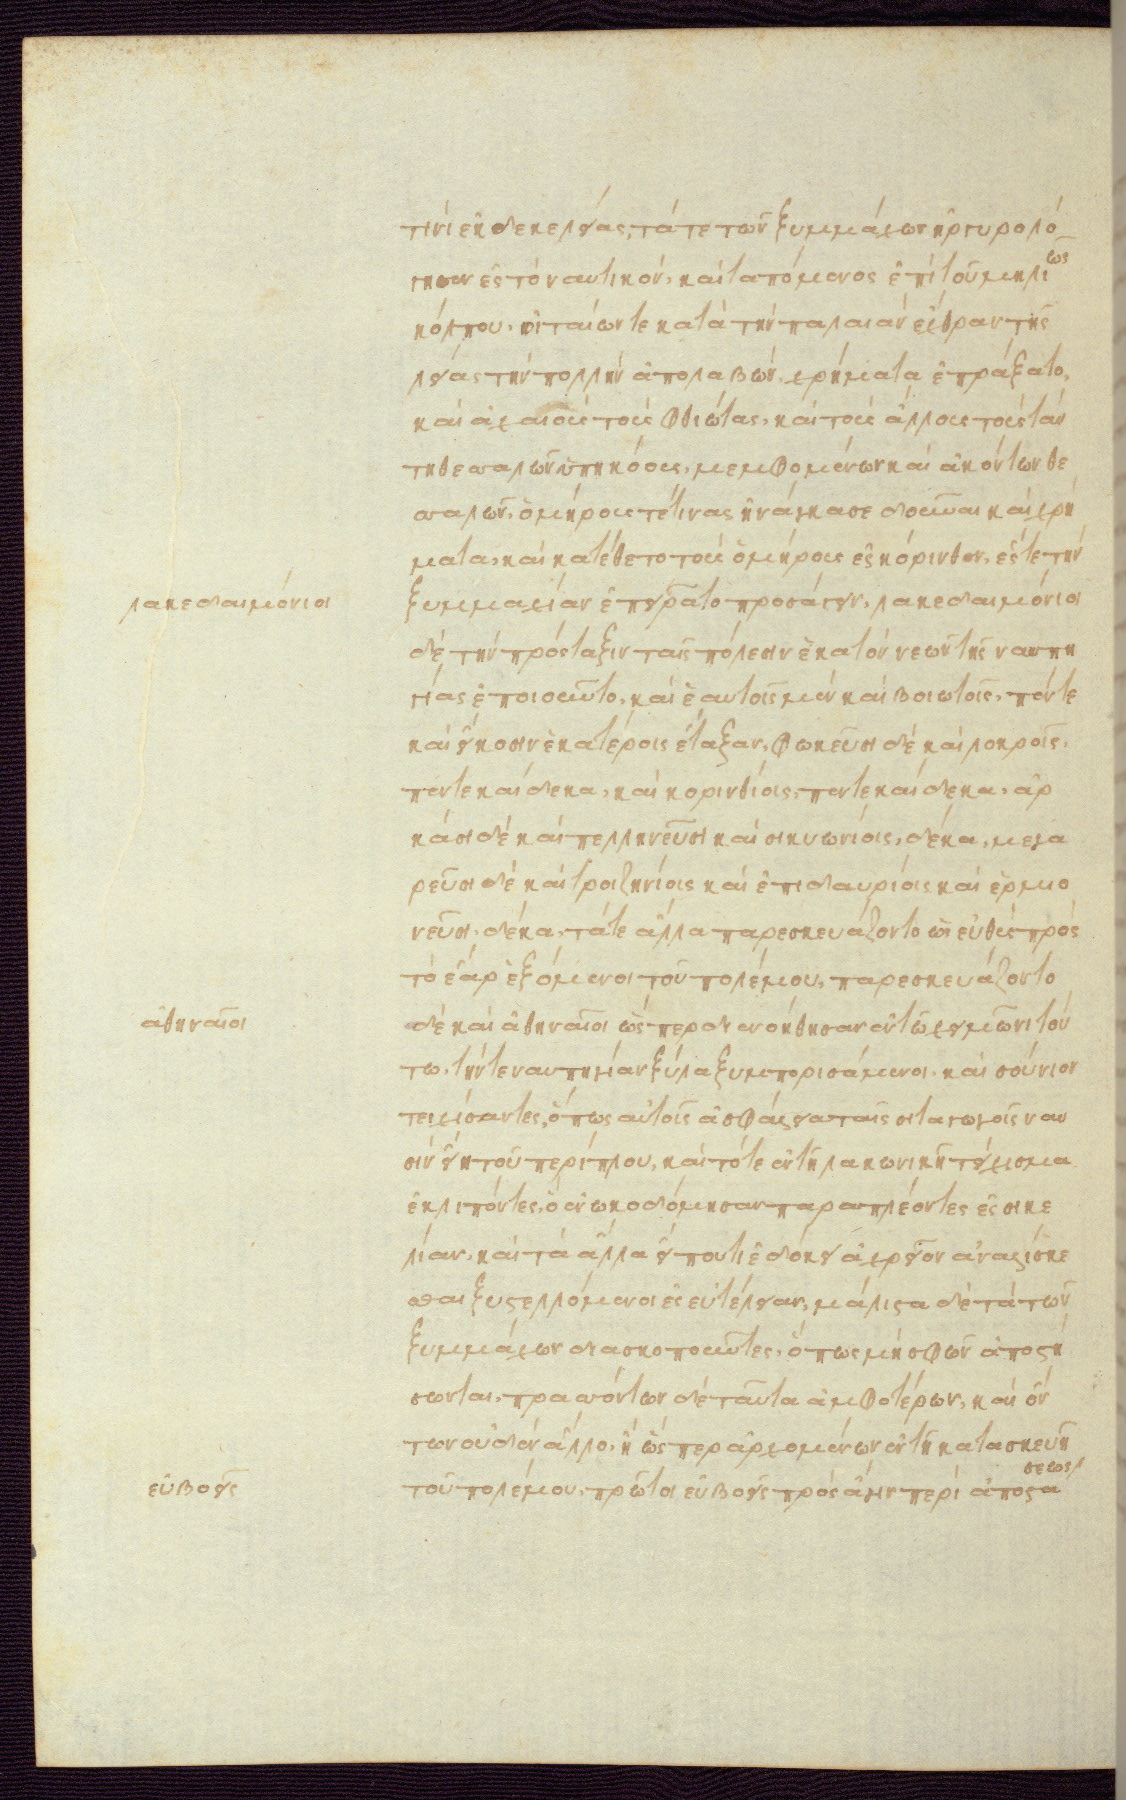 τινὶ ἐκ δεκελείας, τά τε τῶν ξυμμάχων ἠργυρολό_
γησεν ἐς τὸ ναυτικόν, καὶ τραπόμενος ἐπὶ τοῦ μηλιῶς
κόλπου, οἰταίων τε κατὰ τὴν παλαιὰν ἔχθραν τῆς
λείας τὴν πολλὴν ἀπολαβὼν, χρήματα ἐπράξατο,
καὶ ἀχαιοὺς τοὺς φθιώτας, καὶ τοὺς ἄλλους τοὺς ταύ
τῃ θεσσαλῶν ὑπηκόους, μεμφομένων καὶ ἀκόντων θε
σσαλῶν, ὁμήρους τέ τινας ἠνάγκασε δοῦναι καὶ χρή
ματα, καὶ κατέθετο τοὺς ὁμήρους ἐς κόρινθον, ἔς τε τὴν
λακεδαιμόνιοι
ξυμμαχίαν ἐπειρᾶτο προσάγειν, λακεδαιμόνιοι
δὲ τὴν πρόσταξιν ταῖς πόλεσιν ἑκατὸν νεῶν τῆς ναυπη
γίας ἐποιοῦντο, καὶ ἑαυτοῖς μὲν καὶ βοιωτοῖς, πέντε
καὶ εἴκοσιν ἑκατέροις ἔταξαν, φωκεῦσι δὲ καὶ λοκροῖς,
πεντεκαίδεκα, καὶ κορινθίοις, πεντεκαίδεκα, ἀρ
κάσι δὲ καὶ πελληνεῦσι καὶ σικυωνίοις, δέκα, μεγα
ρεῦσι δὲ καὶ τροιζηνίοις καὶ ἐπιδαυρίοις καὶ ἑρμιο
νεῦσι, δέκα, τά τε ἄλλα παρεσκευάζοντο ὡς εὐθὺς πρὸς
τὸ ἔαρ ἑξόμενοι τοῦ πολέμου, παρεσκευάζοντο
ἀθηναῖοι
δὲ καὶ ἀθηναῖοι ὥσπερ διενοήθησαν ἐν τῷ χειμῶνι τού
τῳ, τήν τε ναυπηγίαν ξύλα ξυμπορισάμενοι, καὶ σούνιον
τειχίσαντες, ὅπως αὐτοῖς ἀσφάλεια ταῖς σιταγωγοῖς ναυ
σὶν εἴη τοῦ περίπλου, καὶ τό τε ἐν τῇ λακωνικῇ τείχισμα
ἐκλιπόντες, ὃ ἐνῳκοδόμησαν παραπλέοντες ἐς σικε
λίαν, καὶ τὰ ἄλλα εἴ που τι ἐδόκει ἀχρεῖον ἀναλίσκε
σθαι ξυστελλόμενοι ἐς εὐτέλειαν, μάλιστα δὲ τὰ τῶν
ξυμμάχων διασκοποῦντες, ὅπως μὴ σφῶν ἀποστή
σωνται, πρασσόντων δὲ ταῦτα ἀμφοτέρων, καὶ ὄν
των οὐδὲν ἄλλο, ἢ ὥσπερ ἀρχομένων ἐν τῇ κατασκευῇ
εὐβοεῖς
τοῦ πολέμου, πρῶτοι εὐβοεῖς πρὸς ἄγιν περὶ ἀποστάσεως